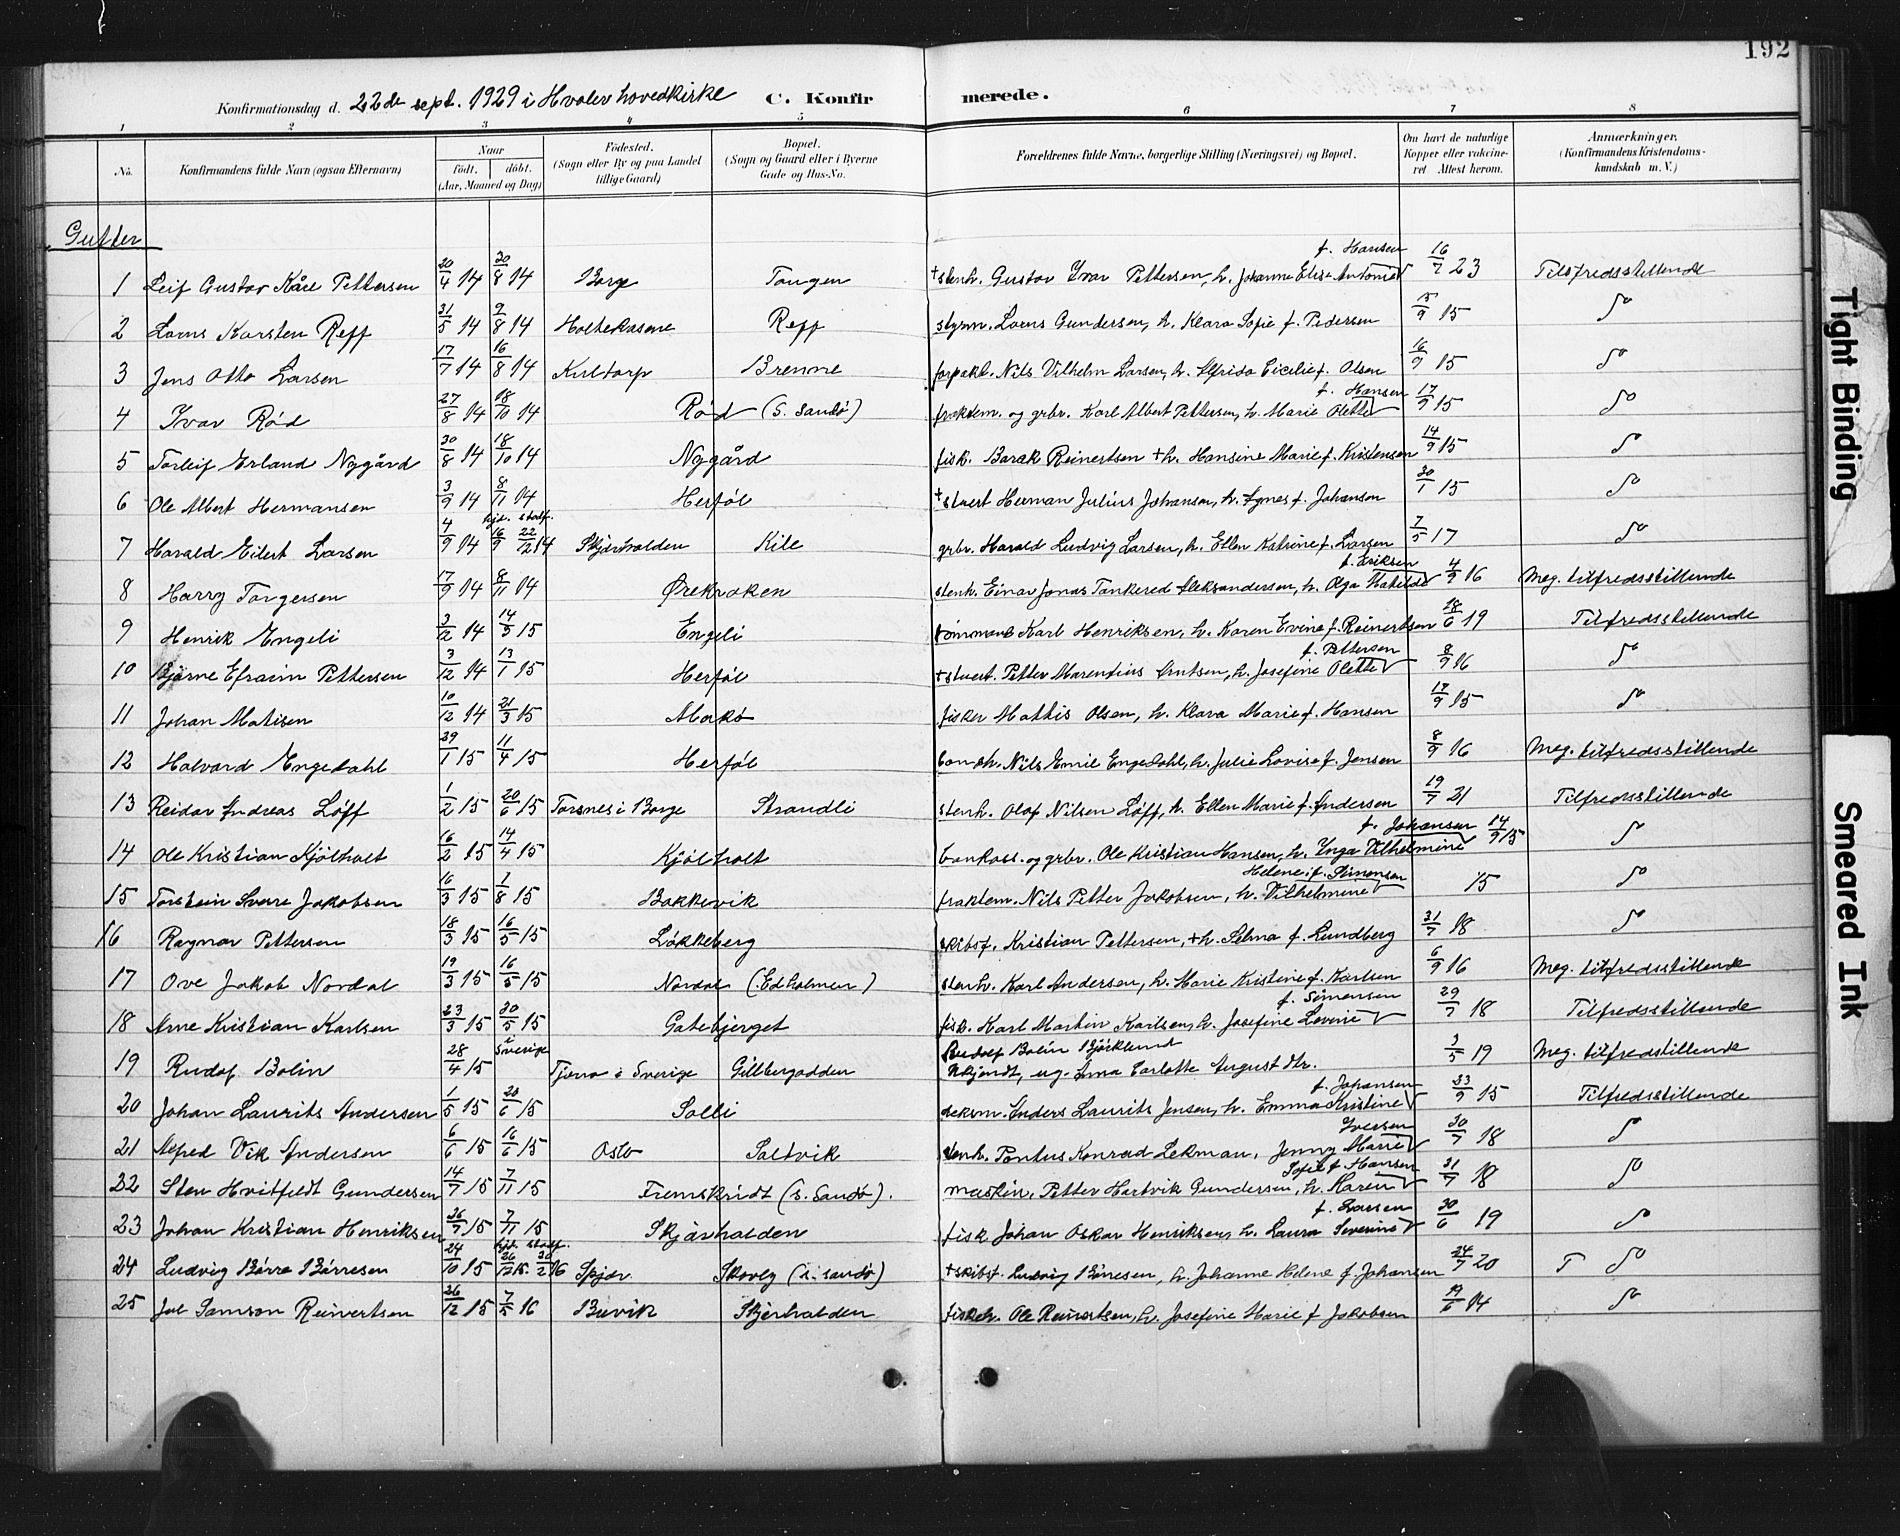 192
Konfirmationsdag d. 22de sept. 1929 i Hvaler hovedkirke C. Konfirmerede.
1 2 3 4 5 6 7 8
No. Konfirmandens fulde Navn (ogsaa Efternavn) Naar født. døbt. (Aar, Maaned og Dag) Fødested. (Sogn eller By og paa Landet tillige Gaard) Bopæl. (Sogn og Gaard eller i Byerne Gade og Hus-No. Forældrenes fulde Navne, borgerlige Stilling (Næringsvei) og Bopæl. Om havt de naturlige Kopper eller vakcineret Attest herom. Anmærkninger. (Konfirmandens Kristendomskundskab m. V.)
Gutter
1 Leif Gustav Kåre Pettersen 20/4 14 30/8 14 Borge Tangen + stenh. Gustav Ivar Pettersen, h. Johanne Elise Antonie f. Hansen 16/7 23 Tilfredsstillende
2 Laurns Karsten Reff 31/5 14 9/8 14 Holtekasene Reff styrm. Laurns Gundersen, h. Klara Sofie f. Pedersen 15/9 15 do
3 Jens Otto Larsen 17/7 14 16/8 14 Kuldorp Brenne forpakt. Nils Vilhelm Larsen, h. Alfrida Cicilie f. Olsen 16/9 15 do
4 Ivar Rød 27/8 14 18/10 14 Rød (S. Sandø) fraktem. og grbr. Karl Albert Pettersen, h. Marie Olette f. Hansen 17/9 15 do
5 Torleif Erland Nygård 30/8 14 18/10 14 Nygård fisk. Barak Reinertsen + h. Hansine Marie f. Kristensen 14/9 15 do
6 Ole Albert Hermansen 3/9 14 8/11 14 Herføl + stuert Herman Julius Johansen, h. Agnes f. Johansen 30/1 15 do
7 Harald Eilert Larsen 4/9 14 hjd. 16/9 stadf. 22/2 14 Skjærhalden Kile grbr. Harald Ludvig Larsen, h. Ellen Katrine f. Larsen 7/5 17 do
8 Harry Torgersen 17/9 14 8/11 14 Ørekroken stenh. Einar Jonas Tankered Aleksandersen, h. Olga Matilde f. Eriksen 4/9 16 Meg. tilfredsstillende
9 Henrik Engeli 2/12 14 14/3 15 Engeli tømmerm. Karl Henriksen, h. Karen Evine f. Reinertsen 18/6 19 Tilfredsstillende
10 Bjarne Efraim Pettersen 3/12 14 13/1 15 Herføl + stuert. Petter Marentius Arntsen, h. Josefine Olette f. Pettersen 8/9 16 do
11 Johan Matisen 10/12 14 21/3 15 Makø fisker Mathis Olsen, h. Klara Marie f. Hansen 18/9 15 do
12 Halvard Engedahl 29/1 15 11/4 15 Herføl Nils Emil Engedahl, h. Julie Lovise f. Jensen 8/9 16 Meg. tilfredsstillende
13 Reidar Andreas Løff 1/2 15 20/6 15 Torsnes i Borge Strandli stenh. Olaf Nilsen Løff, h. Ellen Marie f. Andersen 19/7 21 Tilfredsstillende
14 Ole Kristian Kjølholt 16/2 15 14/4 15 Kjølholt bankass. og grbr. Ole Kristian Hansen, h. Inga Vilhelmine f. Johansen 14/9 15 do
15 Torstein Sverre Jakobsen 16/3 15 1/8 15 Bakkevik fraktem. Nils Petter Jakobsen, h. Vilhelmine Helene f. Simensen 15 do
16 Ragnar Pettersen 18/3 15 16/5 15 Løkkeberg skibsf. Kristian Pettersen, + h. Selma f. Lundberg 31/7 18 do
17 Ove Jakob Nordal 19/3 15 16/5 15 Nordal (Edholmen) stenh. Karl Andersen, h. Marie Kristine f. Karlsen 6/9 16 Meg. tilfredsstillende
18 Arne Kristian Karlsen 23/3 15 30/5 15 Gatebjerget fisk. Karl Martin Karlsen, h. Josefine Lovine f. Simensen 29/7 18 Tilfredsstillende
19 Rudolf Bolin 28/4 15 i Sverige Tjernø i Sverige Gillbergødden Rudolf Bolin Björklund Ukjendt, ug. Anna Carlotte Augustdtr. 3/5 19 Meg. tilfredsstillende
20 Johan Laurits Andersen 1/5 15 20/6 15 Solli deksm. Anders Laurits Jensen, h. Emma Kristine f. Johansen 23/9 15 Tilfredsstillende
21 Alfred Vik Andersen 6/6 15 16/6 15 Oslo Saltvik stenh. Pontus Konrad Lekman, Jenny Marie Iversen 30/7 18 do
22 Sten Hvitfeldt Gundersen 14/7 15 7/11 15 Fremskridt (s. Sandø). maskin. Petter Hartvik Gundersen, h. Karen Sofie f. Hansen 31/7 18 do
23 Johan Kristian Henriksen 26/7 15 7/11 15 Skjærhalden fisk Johan Oskar Henriksen, h. Laura Severine f. Larsen 30/6 19 do
24 Ludvig Børre Børresen 24/10 15 hjd. 26/12 15 stadf. 20/2 16 Spjær Skovly (s. sandø) + skibsf. Ludvig Børresen, h. Johanne Helene f. Johansen 24/7 20 T do
25 Jul Samson Reinertsen 26/12 15 7/5 16 Buvik Skjærhalden fiskeh. Ole Reinertsen, h. Josefine Marie f. Jakobsen 19/6 14 do
Tight Binding
Smeared Ink